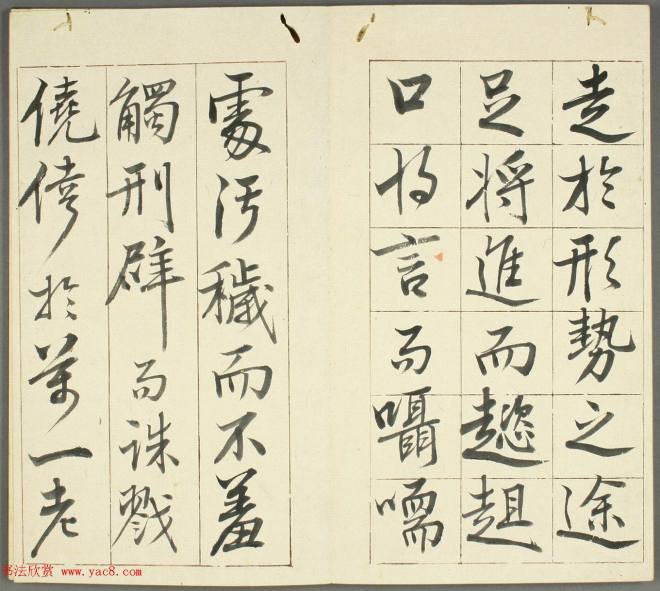 走於形勢之途
足將進而趑趄
口將言而囁嚅
處汚穢而不羞
觸刑辟而誅戮
僥倖於萬一老
书法欣赏 www.yac8.com